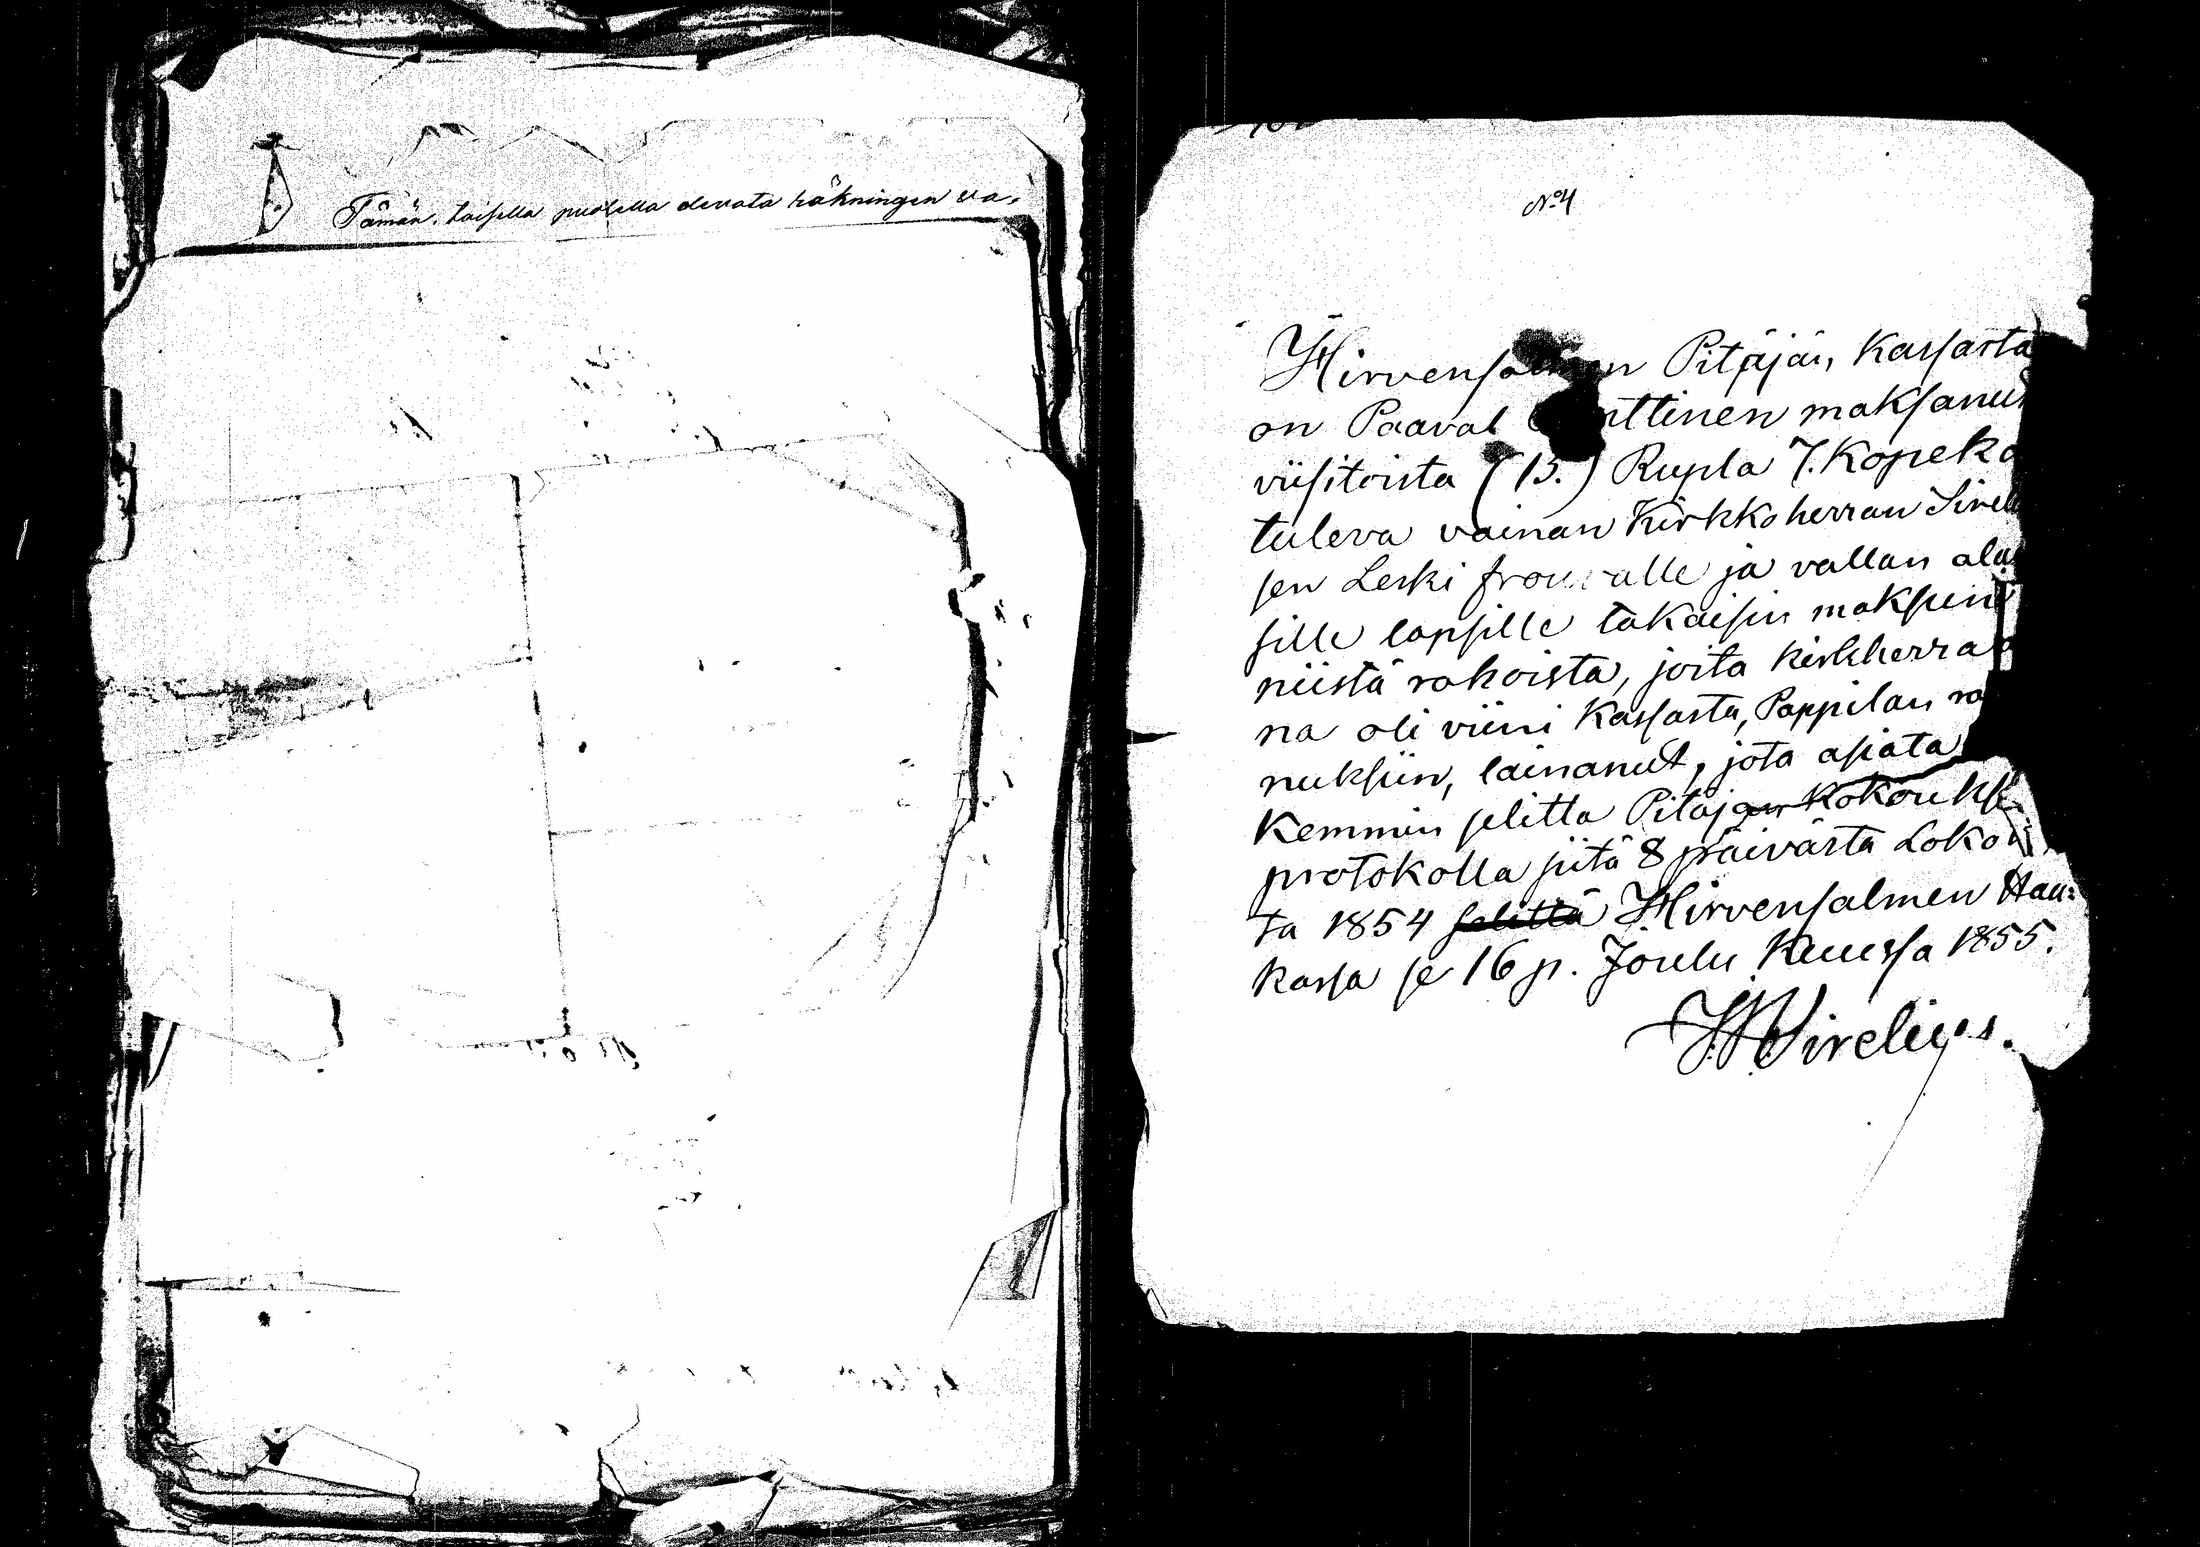 Tämän, toisella puolella olevata räkningen va,
No 4
Hirvensalmen Pitäjän, Kassasta
on Paaval ttinen maksanut
viisitoista (15.) Rupla 7. Kopeka
tuleva vainan Kirkkoherran Sirelu
sen Leski frouvalle ja vallan alai
sille lapsille takaisin maksun
niistä rahoista, joita kirkherra
na oli viini Kassasta, Pappilan ra
nuksiin, lainanut, jota asiata
Kemmin selitta Pitäjan Kokouks
protokolla siitä 8 päivästä Loko
ta 1854 selittä Hirvensalmen Hau:
kassa se 16 p. Joulu Kuussa 1855.
Sirelius.